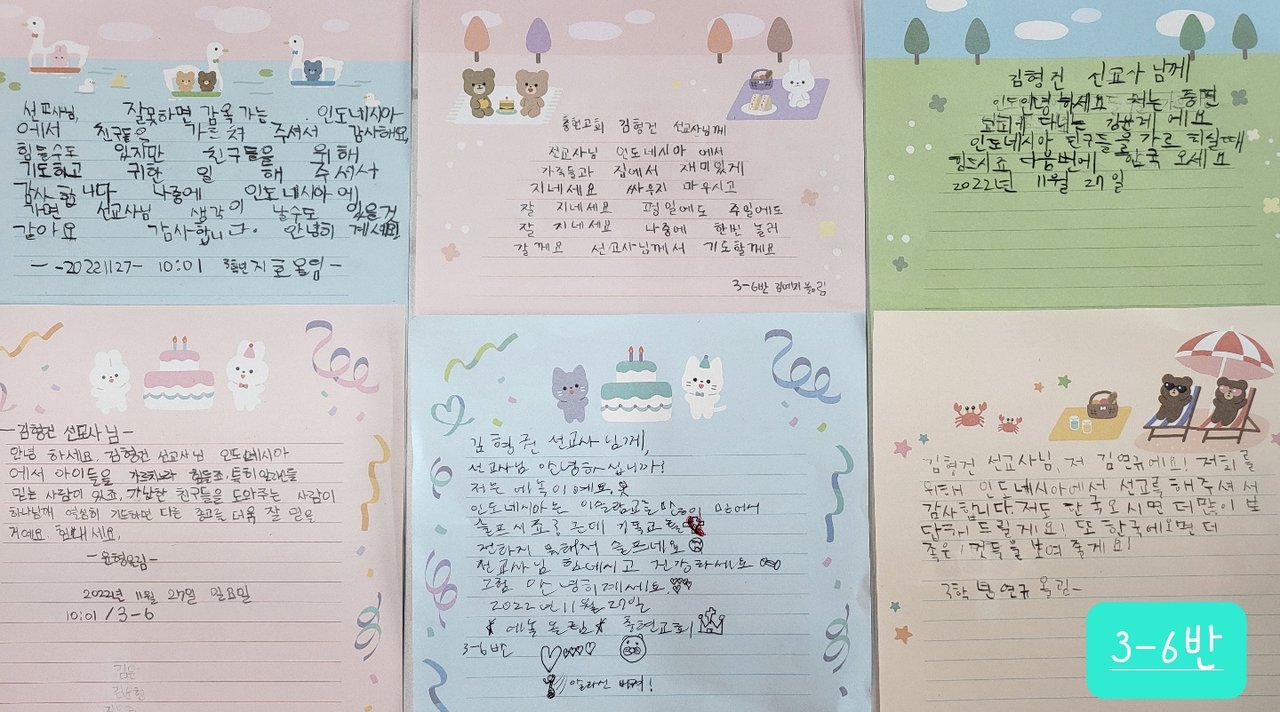 선교사님 잘못하면 감옥 가는 인도네시아
에서 친구들을 가르쳐 주셔서 감사해요
힘들수도 있지만 친구들을 위해
기도하고 귀한 일 해 주셔서
감사합니다 나중에 인도네시아에
가면 선교사님 생각이 날수도 있을것
같아요 감사합니다. 안녕히 계세요
- -20221127- 10:01 3학년 지호 올림-
충현교회 김형건 선교사님께
선교사님 인도네시아 에서
가족들과 집에서 재미있게
지내세요 싸우지 마우시고
잘 지네세요 평일에도 주일에도
잘 지네세요 나중에 한번 놀러
갈께요 선교사님께서 기도할께요
3-6반
김형건 선교사님께
안녕하세요 저는 충현
교회에 다니는 에요
인도네시아 친구들을 가르치실때
힘드시죠 다음번에 한국 오세요
2022년 11월 27일
-김형건 선교사님-
안녕 하세요. 김형건 선교사님 인도네시아
에서 아이들을 힘들죠. 특히
믿는 사람이 있죠. 가난한 친구들을 도와주는 사람이
하나님께 열심히 기도하면 다른 종교를 더욱 잘 믿을
거예요. 힘내세요.
-윤형올림-
2022년 11월 27일 일요일
10:01 / 3-6
김형건 선교사님께,
선교사님 안녕하십니까!
저는 에녹이예요.
인도네시아는 이슬람교를 믿
슬프시죠? 근데 기독교를
전하지 못해서 슬프네요
선교사님 힘내시고 건강하세요
그럼 안녕히계세요.
2022년 11월 27일
에녹 올림 충현교회
3-6반
김형건 선교사님, 저 김연규에요! 저희를
위해 인도네시아에서 선교를 해주셔서
감사합니다. 저도 한국오시면 더많이 보
답해 드릴게요! 또 한국에오면 더
좋은! 것들을 보여 줄게요!
3학년 연규 올림-
3-6반